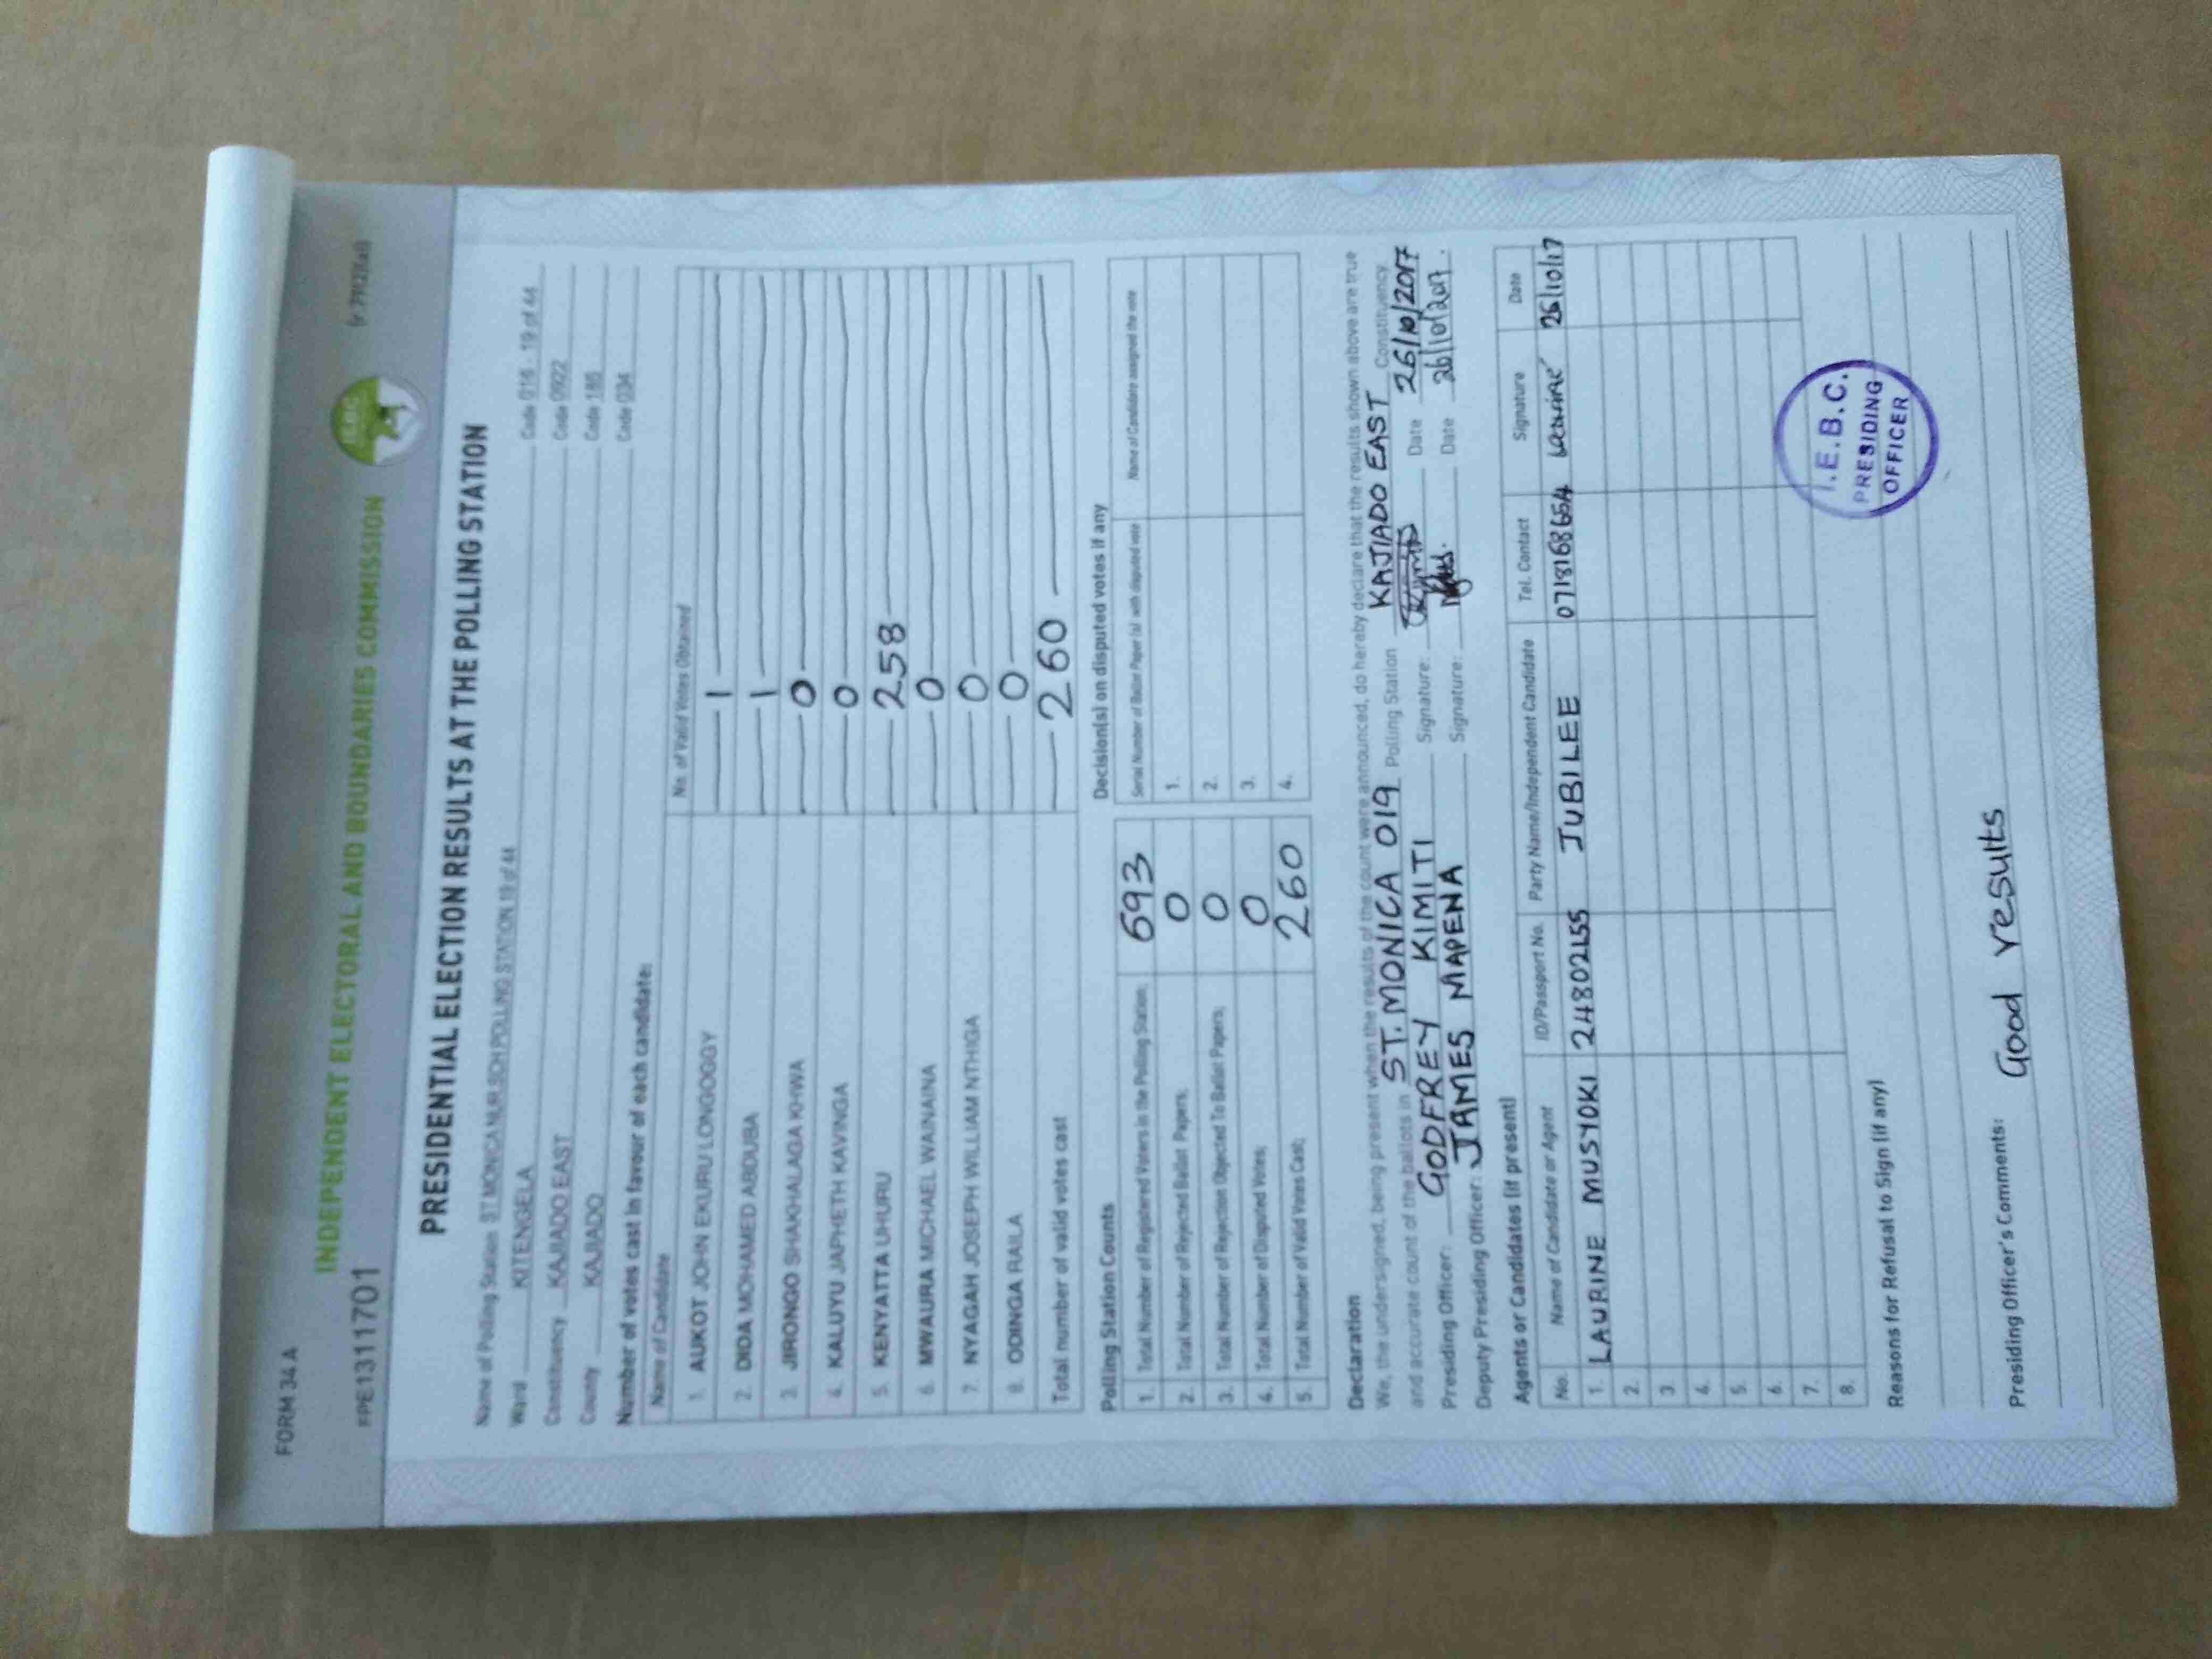 FORM 34 A
INDEPENDENT ELECTORAL AND BOUNDARIES COMMISSION
FPE1311701
PRESIDENTIAL ELECTION RESULTS AT THE POLLING STATION
Name of Polling Station ST MONICA NUR SCH POLLING STATION 19 of 44 Code 016 - 19 of 44
Ward KITENGELA Code 0922
Constituency KAJIADO EAST Code 185
County KAJIADO Code 034
Number of votes cast in favour of each candidate:
Name of Candidate No. of Valid Votes Obtained
1. AUKOT JOHN EKURU LONGOGGY 1
2. DIDA MOHAMED ABDUBA 1
3. JIRONGO SHAKHALAGA KHWA 0
4. KALUYU JAPHETH KAVINGA 0
5. KENYATTA UHURU 258
6. MWAURA MICHAEL WAINAINA 0
7. NYAGAH JOSEPH WILLIAM NTHIGA 0
8. ODINGA RAILA 0
Total number of valid votes cast 260
Polling Station Counts
1. Total Number of Registered Voters in the Polling Station; 693
2. Total Number of Rejected Ballot Papers; 0
3. Total Number of Rejection Objected To Ballot Papers; 0
4. Total Number of Disputed Votes; 0
5. Total Number of Valid Votes Cast; 260
Decision(s) on disputed votes if any
Serial Number of Ballot Paper (s) with disputed vote Name of Candidate assigned the vote
1.
2.
3.
4.
Declaration
We, the undersigned, being present when the results of the count were announced, do hereby declare that the results shown above are true
and accurate count of the ballots in ST. MONICA 019 Polling Station KAJIADO EAST Constituency
Presiding Officer: GODFREY KIMITI Signature: Date 26/10/2017
Deputy Presiding Officer: JAMES MAPENA Signature: Date 26/10/2017.
Agents or Candidates (if present)
No. Name of Candidate or Agent ID/Passport No. Party Name/Independent Candidate Tel. Contact Signature Date
1. LAURINE MUSYOKI 24802155 JUBILEE 0718168654 26/10/17
2.
3.
4.
5.
6.
7.
8.
I.E.B.C.
PRESIDING
OFFICER
Reasons for Refusal to Sign (if any)
Presiding Officer's Comments: Good results